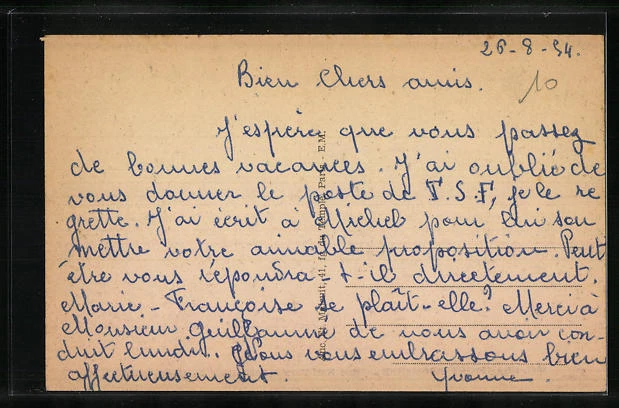 26-8-54.
Bien Chers amis.
10
J'espère que vous passez
de bonnes vacances. J'ai oublié de
vous donner le poste de T.S.F, je le re
grette. J'ai écrit à Michel pour lui sou
mettre votre aimable proposition. Peut
être vous répondra-t-il directement.
Marie-Françoise se plaît-elle? Merci à
Monsieur Guillaume de vous avoir con-
duit lundi. Nous vous embrassons bien
affectueusement. Yvonne.
Paris E.M.